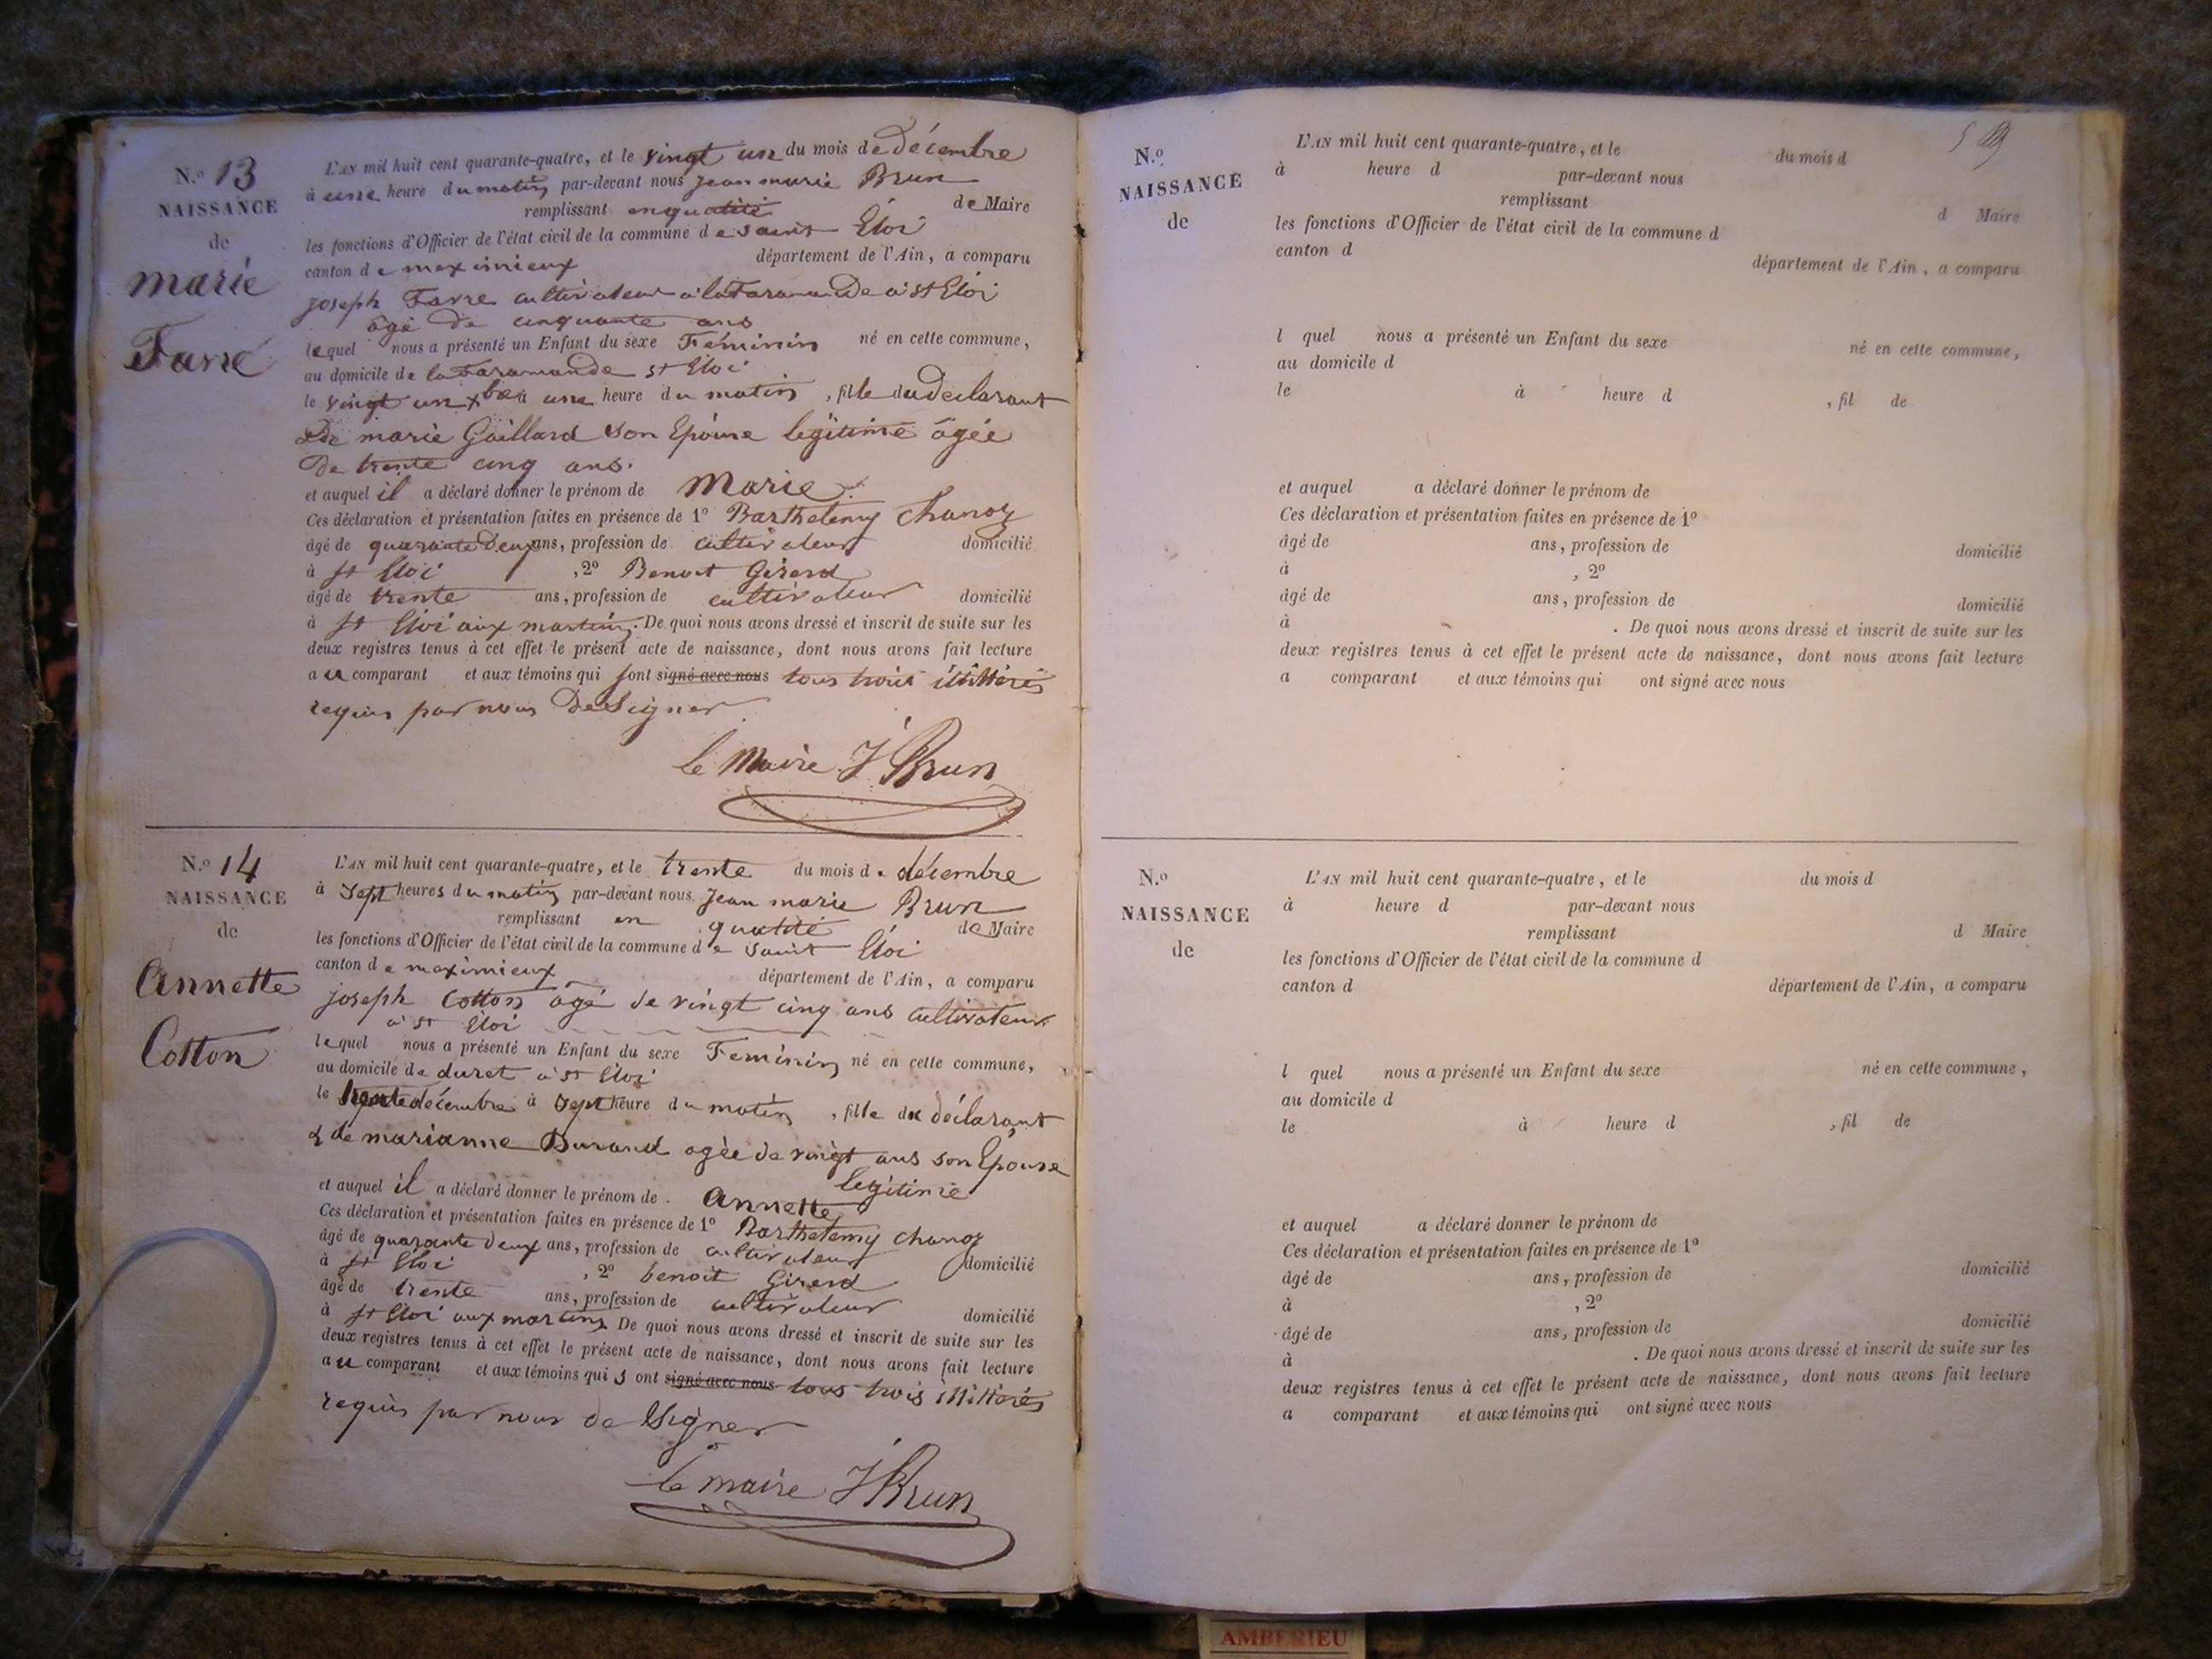 N.º 13
NAISSANCE
de
marie
Favre
L'AN mil huit cent quarante-quatre, et le vingt un du mois de décembre
à une heure du matin par-devant nous jean marie Brun
remplissant en qualité de Maire
les fonctions d'Officier de l'état civil de la commune de saint Eloi
canton de meximieux département de l'Ain, a comparu
joseph Favre cultivateur à la Faramande à st Eloi
âgé de cinquante ans
lequel nous a présenté un Enfant du sexe Féminin né en cette commune,
au domicile de la Faramande st Eloi
le vingt un xbre à une heure du matin, fille du declarant
& de marie Gaillard son Epouse legitime âgée
de trente cinq ans.
et auquel il a déclaré donner le prénom de Marie.
Ces déclaration et présentation faites en présence de 1º Barthelemy chanoz
âgé de quarante deux ans, profession de cultivateur domicilié
à st Eloi, 2º Benoit Girerd
âgé de trente ans, profession de cultivateur domicilié
à st Eloi aux martins. De quoi nous avons dressé et inscrit de suite sur les
deux registres tenus à cet effet le présent acte de naissance, dont nous avons fait lecture
au comparant et aux témoins qui sont signé avec nous tous trois illitérés
requis par nous de Signer
le Maire J Brun
N.º 14
NAISSANCE
de
annette
Cotton
L'AN mil huit cent quarante-quatre, et le trente du mois de décembre
à sept heures du matin par-devant nous jean marie Brun
remplissant en qualité de Maire
les fonctions d'Officier de l'état civil de la commune de saint Eloi
canton de meximieux département de l'Ain, a comparu
joseph Cotton âgé de vingt cinq ans cultivateur
à st Eloi
lequel nous a présenté un Enfant du sexe Feminin né en cette commune,
au domicile de duret à st Eloi
le trente décembre à sept heure du matin, fille du déclarant
& de marianne Durand agée de vingt ans son Epouse
legitime
et auquel il a déclaré donner le prénom de annette
Ces déclaration et présentation faites en présence de 1º Barthelemy chanoz
âgé de quarante deux ans, profession de cultivateur domicilié
à st Eloi, 2º benoit Girerd
âgé de trente ans, profession de cultivateur domicilié
à st Eloi aux martins. De quoi nous avons dressé et inscrit de suite sur les
deux registres tenus à cet effet le présent acte de naissance, dont nous avons fait lecture
au comparant et aux témoins qui s ont signé avec nous tous trois illittérés
requis par nous de Signer
le maire J Brun
N.º
NAISSANCE
de
L'AN mil huit cent quarante-quatre, et le du mois d
à heure d par-devant nous
remplissant d Maire
les fonctions d'Officier de l'état civil de la commune d
canton d département de l'Ain, a comparu
l quel nous a présenté un Enfant du sexe né en cette commune,
au domicile d
le à heure d , fil de
et auquel a déclaré donner le prénom de
Ces déclaration et présentation faites en présence de 1º
âgé de ans, profession de domicilié
à , 2º
âgé de ans, profession de domicilié
à . De quoi nous avons dressé et inscrit de suite sur les
deux registres tenus à cet effet le présent acte de naissance, dont nous avons fait lecture
a comparant et aux témoins qui ont signé avec nous
N.º
NAISSANCE
de
L'AN mil huit cent quarante-quatre, et le du mois d
à heure d par-devant nous
remplissant d Maire
les fonctions d'Officier de l'état civil de la commune d
canton d département de l'Ain, a comparu
l quel nous a présenté un Enfant du sexe né en cette commune,
au domicile d
le à heure d , fil de
et auquel a déclaré donner le prénom de
Ces déclaration et présentation faites en présence de 1º
âgé de ans, profession de domicilié
à , 2º
âgé de ans, profession de domicilié
à . De quoi nous avons dressé et inscrit de suite sur les
deux registres tenus à cet effet le présent acte de naissance, dont nous avons fait lecture
a comparant et aux témoins qui ont signé avec nous
AMBERIEU